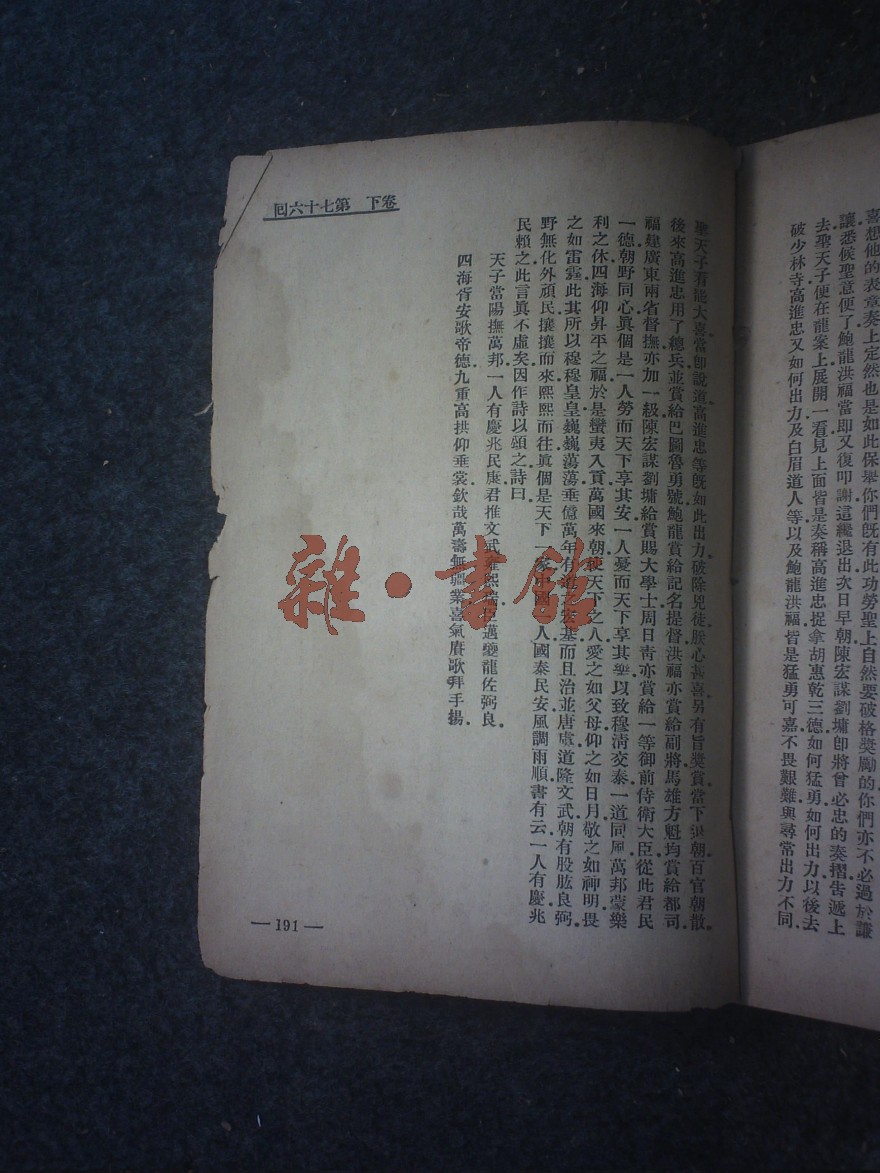 喜想他的表章奏上定然也是如此保舉你們既有此功勞聖上自然要破格獎勵的你們亦不必過於謙
讓悉候聖意便了鮑龍洪福當即又復叩謝這纔退出次日早朝陳宏謀劉墉卽將曾必忠的奏摺吿遞上
去聖天子便在龍案上展開一看見上面皆是奏稱高進忠捉拿胡惠乾三德如何猛勇如何出力以後去
破少林寺高進忠又如何出力及白眉道人等以及鮑龍洪福皆是猛勇可嘉不畏艱難與尋常出力不同
卷下 第七十六回
聖天子看能大喜當卽說道高進忠等旣如此出力破除兇徒朕心甚喜另有旨獎賞當下退朝百官朝散
後來高進忠用了總兵並賞給巴圖魯勇號鮑龍賞給記名提督洪福亦賞給副將馬雄方魁均賞給都司
福建廣東兩省督撫亦加一級陳宏謀劉墉給賞賜大學士周日靑亦賞給一等御前侍衛大臣從此君民
一德朝野同心眞個是一人勞而天下享其安一人憂而天下享其樂以致穆淸交泰一道同風萬邦蒙樂
利之休四海仰昇平之福於是蠻夷入貢萬國來朝使天下之人愛之如父母仰之如日月敬之如神明畏
之如雷霆此其所以穆穆皇皇巍巍蕩蕩垂億萬年有道之宏基而且治並唐虞道隆文武朝有股肱良弼
野無化外頑民攘攘而來熙熙而往眞個是天下一家中國一人國泰民安風調雨順書有云一人有慶兆
民賴之此言眞不虛矣因作詩以頌之詩曰
天子當陽撫萬邦一人有慶兆民康君推文武雍熙 臣邁夔龍佐弼良
四海胥安歌帝德九重高拱仰垂裳欽哉萬壽無疆業喜氣賡歌拜手揚
— 191 —
雜·書館